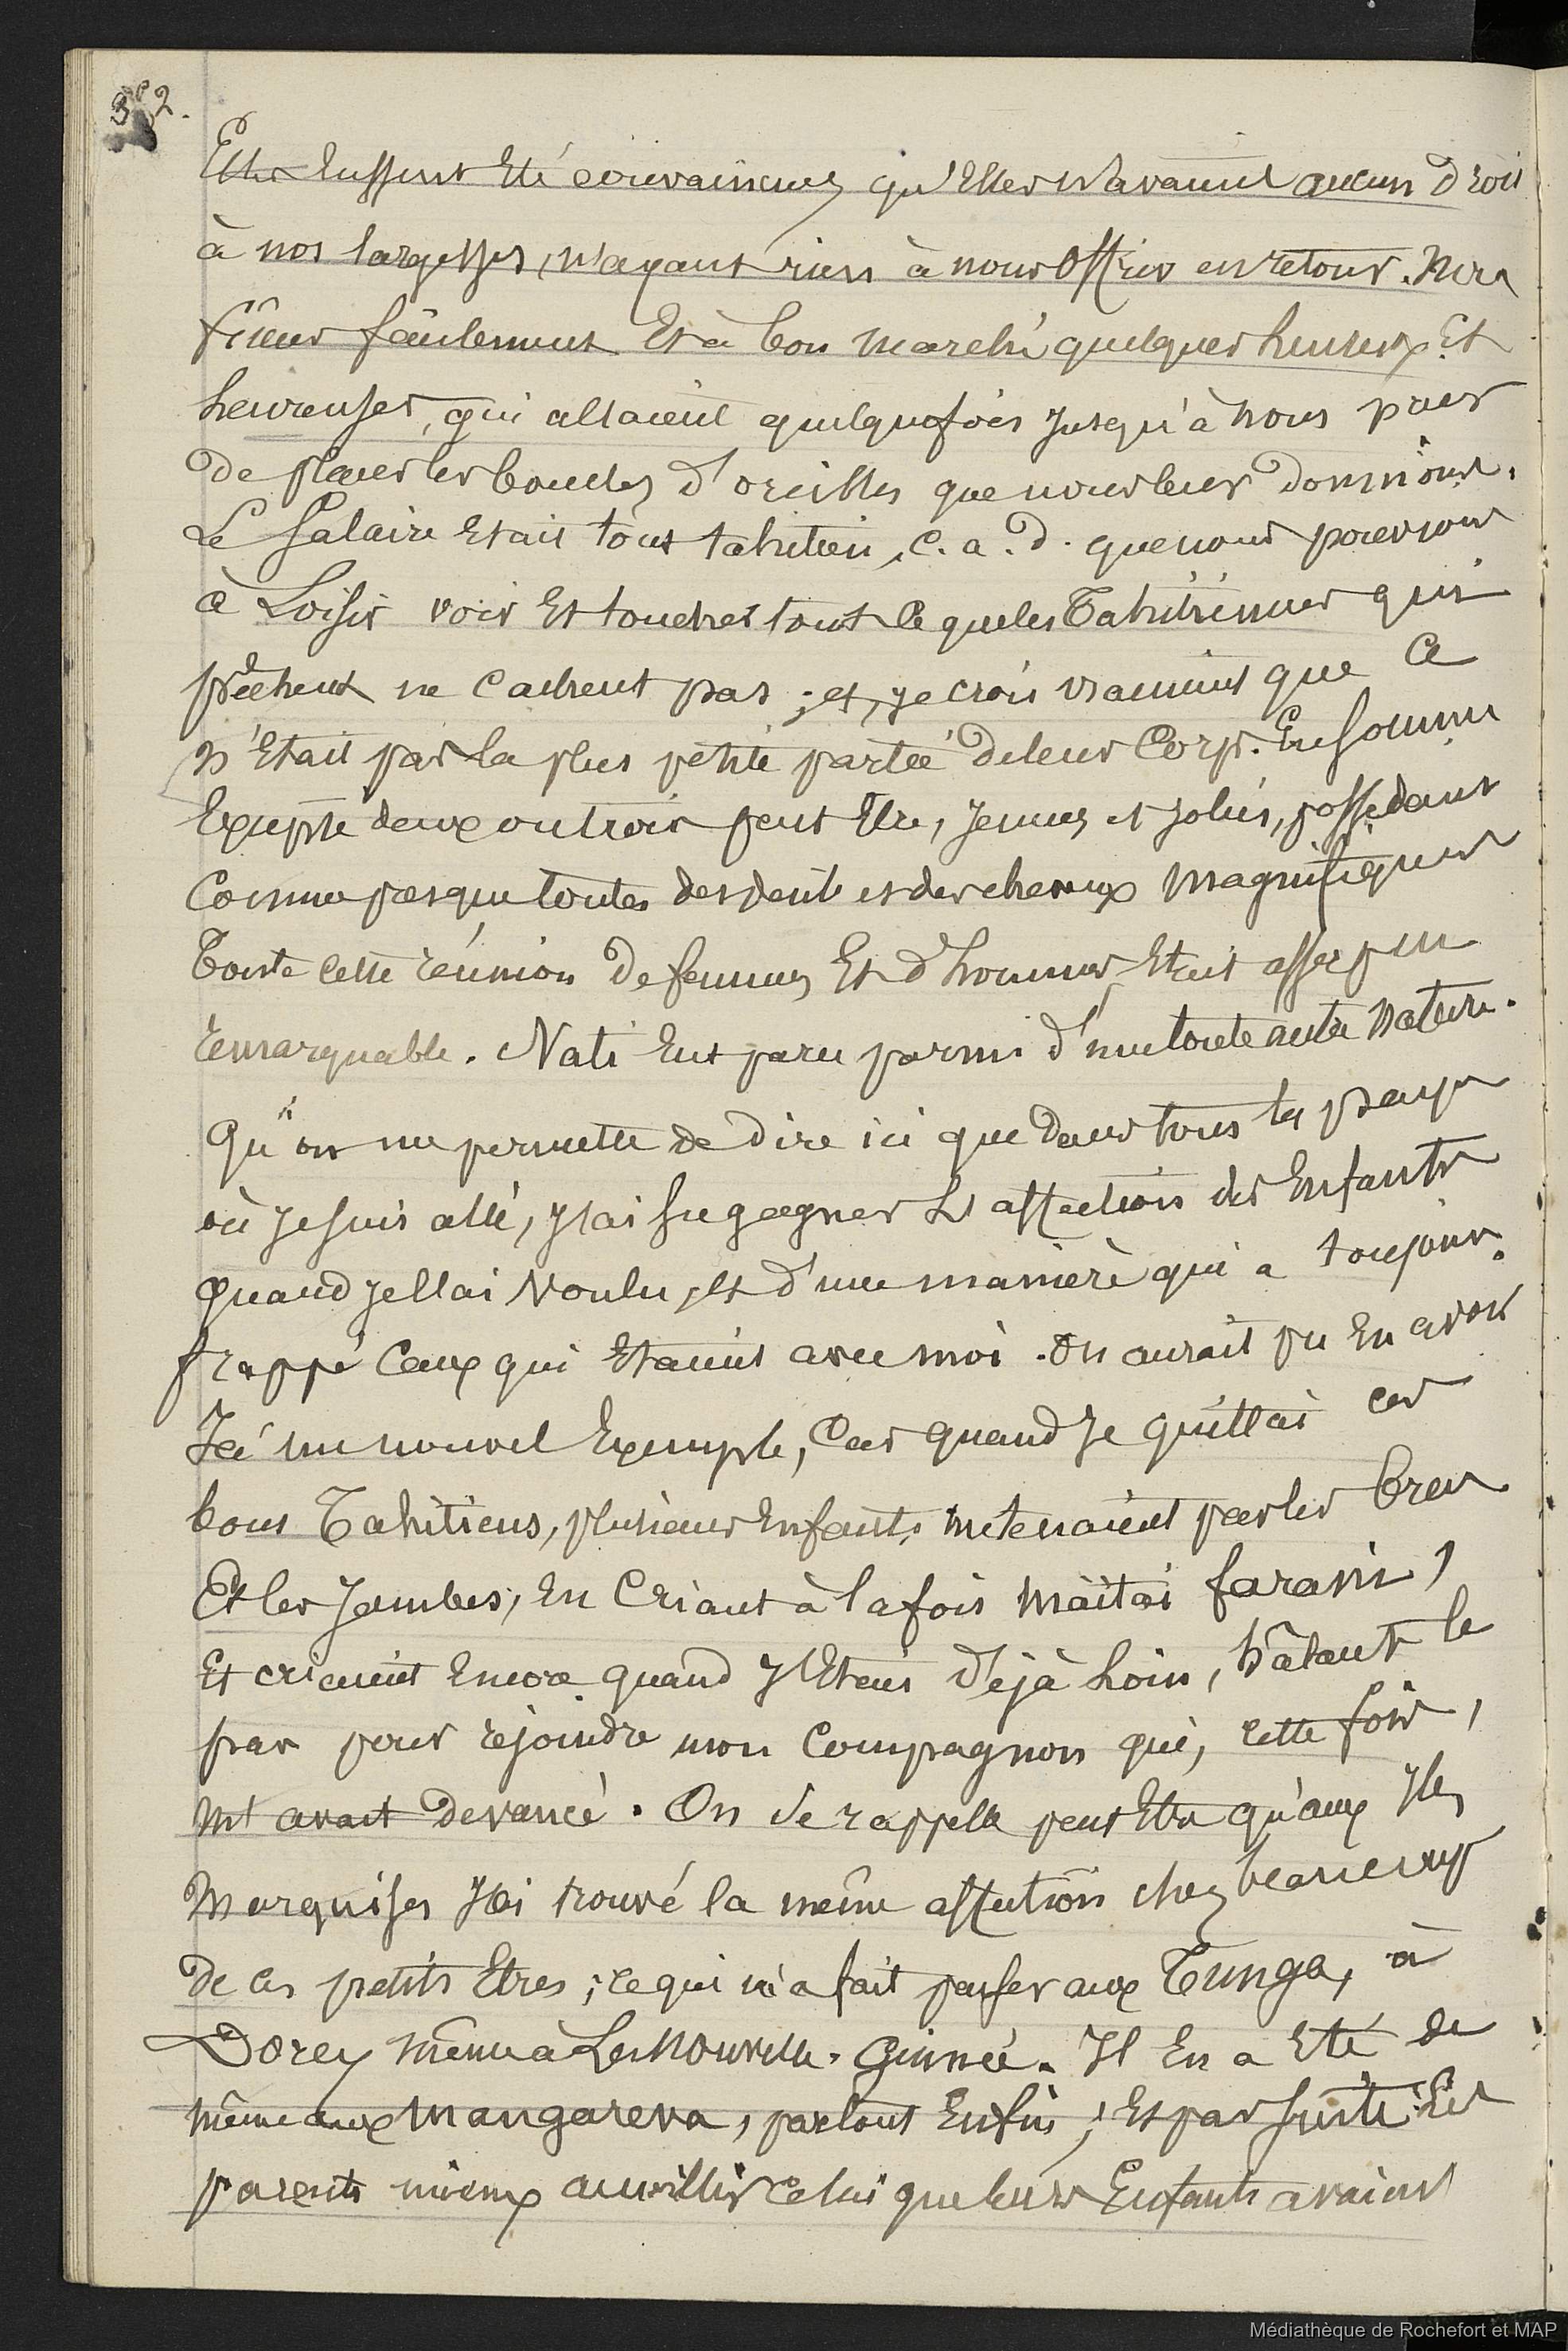 3e2.
Elles eussent Eté convaincues qu'Elles n'avaient aucun droit
à nos largesses, n'ayant rien à nous Offrir en retour. Nous
fimes facilement Et à bon marché quelques heureux Et
heureuses, qui allaient quelquefois jusqu'à nous prier
de placer les boucles d'oreilles que nous leur donnions.
Le Salaire Etait tout tahitien, c. a. d. que nous pouvions
à Loisir voir Et toucher tout ce que les Tahitiennes qui
pêchent ne cachent pas ; et, je crois vraiment que ce
n'Etait pas la plus petite partie de leur Corps. En Somme
Excepté deux ou trois peut Etre, jeunes et jolies, possédant
Comme presque toutes des dents et des cheveux magnifiques
Toute cette réunion de femmes Et d'hommes Etait assez peu
remarquable. Nati Eut paru parmi d'une toute autre Nature.
Qu'on me permette de dire ici que dans tous les pays
où je suis allé, j'ai su gagner L'affection des Enfants
quand je l'ai voulu, Et d'une manière qui a toujours
frappé Ceux qui Etaient avec moi. On aurait pu En avoir
Ici un nouvel Exemple, Car quand je quittai ces
bons Tahitiens, plusieurs Enfants me tenaient par les bras
Et les Jambes, En Criant à la fois maïtaï farani,
Et criaient Encore quand J'Etais déjà Loin, hâtant le
pas pour rejoindre mon Compagnon qui, cette fois,
m'avait devancé. On se rappelle peut Etre qu'aux Iles
Marquises J'ai trouvé la même affection chez beaucoup
de ces petits Etres ; ce qui m'a fait penser aux Tunga, à
Dorey même à La Nouvelle-Guinée. Il En a Eté de
même aux Mangareva, partout Enfin ; Et par suite les
parents mieux accueillir celui que leurs Enfants avaient
Médiathèque de Rochefort et MAP